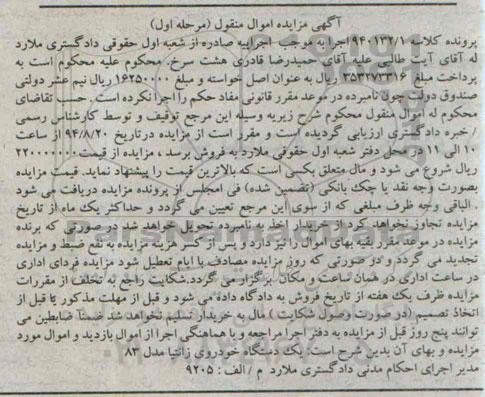 آگهی مزایده اموال منقول (مرحله اول)
پرونده کلاسه ۹۴۰۱۳۲/۱ اجرا به موجب اجراییه صادره از شعبه اول حقوقی دادگستری ملارد
له آقای آیت طالبی علیه آقای حمیدرضا قادری هشت سرخ، محکوم علیه محکوم است به
پرداخت مبلغ ۳۵۳۲۷۳۳۱۶ ریال به عنوان اصل خواسته و مبلغ ۱۶۲۵۰۰۰۰ ریال نیم عشر دولتی
صندوق دولت چون نامبرده در موعد مقرر قانونی مفاد حکم را اجرا نکرده است. حسب تقاضای
محکوم له اموال منقول محکوم شرح زیر به وسیله این مرجع توقیف و توسط کارشناس رسمی
/ خبره دادگستری ارزیابی گردیده است و مقرر است از مزایده در تاریخ ۹۴/۸/۲۰ از ساعت
۱۰ الی ۱۱ در محل دفتر شعبه اول حقوقی ملارد به فروش برسد ، مزایده از قیمت ۲۲۰۰۰۰۰۰۰
ریال شروع می شود و مال متعلق بکسی است که بالاترین قیمت را پیشنهاد نماید. قیمت مزایده
بصورت وجه نقد یا چک بانکی (تضمین شده) فی المجلس از برنده مزایده دریافت می شود
. الباقی وجه ظرف مبلغی که از سوی این مرجع تعیین می گردد و حداکثر یک ماه از تاریخ
مزایده تجاوز نخواهد کرد از خریدار اخذ به نامبرده تحویل خواهد شد در صورتی که برنده
مزایده در موعد مقرر بقیه بهای اموال را نپردازد و پس از کسر هزینه مزایده به نفع ضبط و مزایده
تجدید می گردد و در صورتی که روز مزایده مصادف با ایام تعطیل شود مزایده فردای اداری
در ساعت اداری در همان ساعت و مکان برگزار می گردد.شکایت راجع به تخلف از مقررات
مزایده ظرف یک هفته از تاریخ فروش به دادگاه داده می شود و قبل از مهلت مذکور یا قبل از
اتخاذ تصمیم (در صورت وصول شکایت) مال به خریدار تسلیم نخواهد شد ضمنا ضابطین می
توانند پنج روز قبل از مزایده به دفتر اجرا مراجعه و با هماهنگی اجرا از اموال بازدید و اموال مورد
مزایده و بهای آن بدین شرح است: یک دستگاه خودروی زانتیا مدل ۸۳
مدیر اجرای احکام مدنی دادگستری ملارد م / الف : ۹۲۰۵